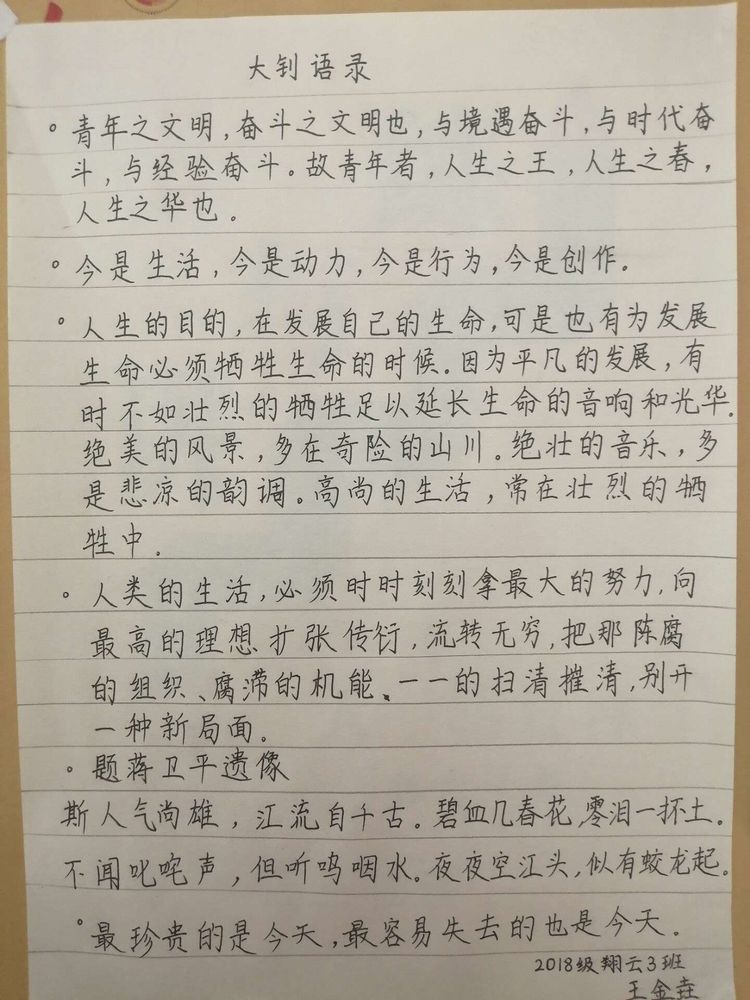 大钊语录
。青年之文明,奋斗之文明也,与境遇奋斗,与时代奋
斗,与经验奋斗。故青年者,人生之王,人生之春,
人生之华也。
。今是生活,今是动力,今是行为,今是创作。
。人生的目的,在发展自己的生命,可是也有为发展
生命必须牺牲生命的时候。因为平凡的发展,有
时不如壮烈的牺牲足以延长生命的音响和光华.
绝美的风景,多在奇险的山川。绝壮的音乐,多
是悲凉的韵调。高尚的生活,常在壮烈的牺
牲中。
。人类的生活,必须时时刻刻拿最大的努力,向
最高的理想扩张传衍,流转无穷,把那陈腐
的组织、腐滞的机能、一一的扫清摧清,别开
一种新局面。
。题蒋卫平遗像
斯人气尚雄,江流自千古。碧血几春花,零泪一抔土。
不闻叱咤声,但听呜咽水。夜夜空江头,似有蛟龙起。
。最珍贵的是今天,最容易失去的也是今天。
2018级翔云3班
王金垚